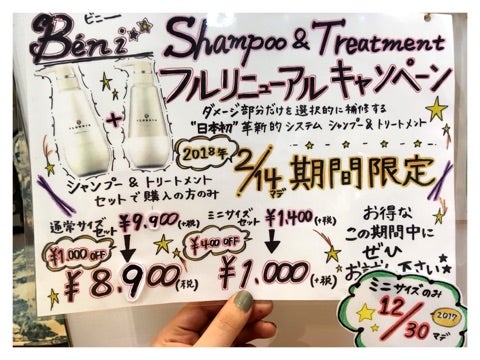 ビニー
Béni Shampoo & Treatment
フルリニューアル キャンペーン
ダメージ部分だけを選択的に補修する
"日本初" 革新的システム シャンプー&トリートメント
2018年
2/14マデ 期間限定
シャンプー & トリートメント
セットで購入の方のみ
通常サイズセット ¥9.900(+税)
¥1,000 OFF
¥8.900(税)
ミニサイズセット ¥1.400(+税)
¥400 OFF
¥1.000(+税)
お得な
この期間中に
ぜひ
ミニサイズのみ
12/30マデ
2017